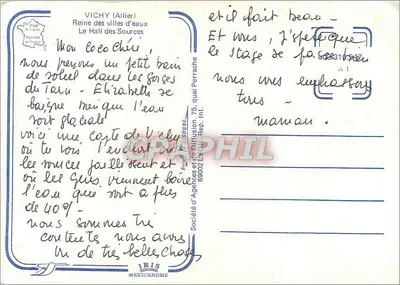 VICHY (Allier)
Reine des villes d'eaux
Le Hall des Sources
Mon coco chéri,
nous prenons un petit bain
de soleil dans les gorges
du Tarn - Elizabeth se
baigne bien que l'eau
soit glaciale
voici une carte de Vichy
où tu vois l'endroit où
les sources jaillissent et
où les gens viennent boire
l'eau qui sort à plus
de 40° -
nous sommes très
contents nous avons
vu de très belles choses
et il fait beau -
Et vous, j'espère que
le stage se passe bien
nous vous embrassons
tous -
maman -
Société d'Agences et de Diffusion, 75, quai Perrache
69002 LYON. Rep. Int.
IRIS
MEXICHROME